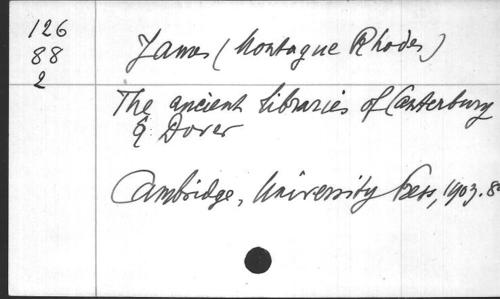 126
88
2
James (Montague Rhodes)
The ancient libraries of Canterbury
& Dover
Cambridge, University Press, 1903. 8°